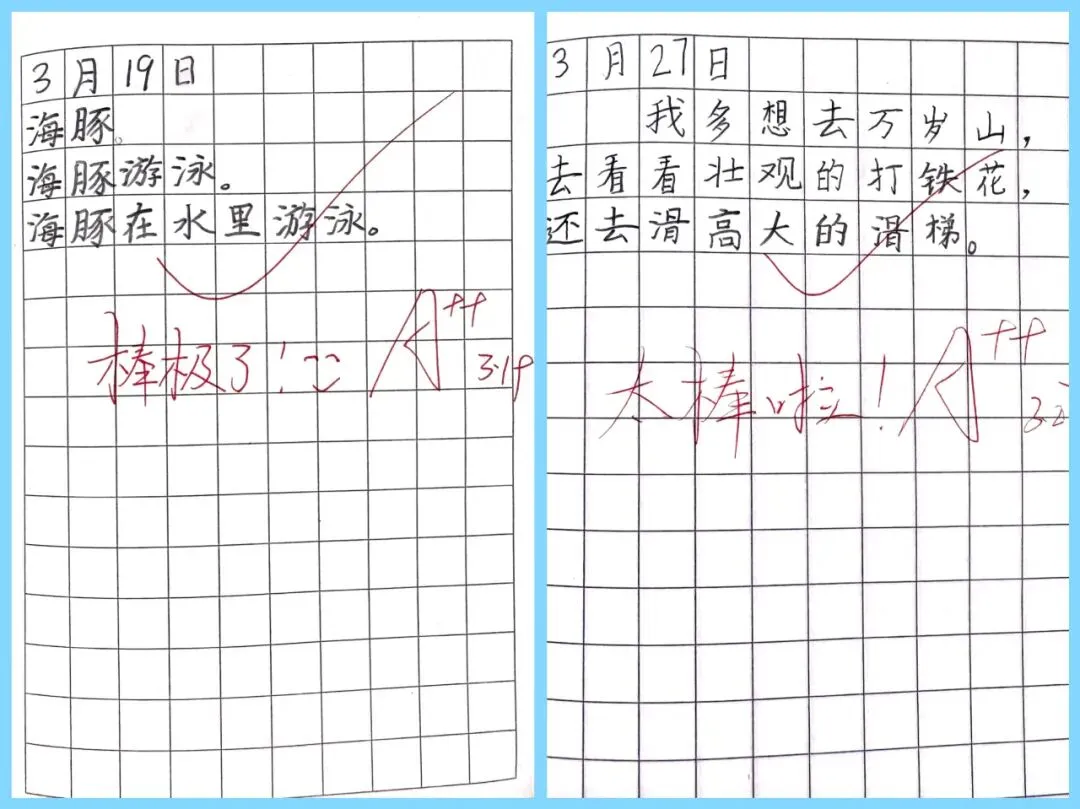 3月19日
海豚。
海豚游泳。
海豚在水里游泳。
棒极了!
A++
3.19
3月27日
我多想去万岁山,
去看看壮观的打铁花,
还去滑高大的滑梯。
太棒啦!
A++